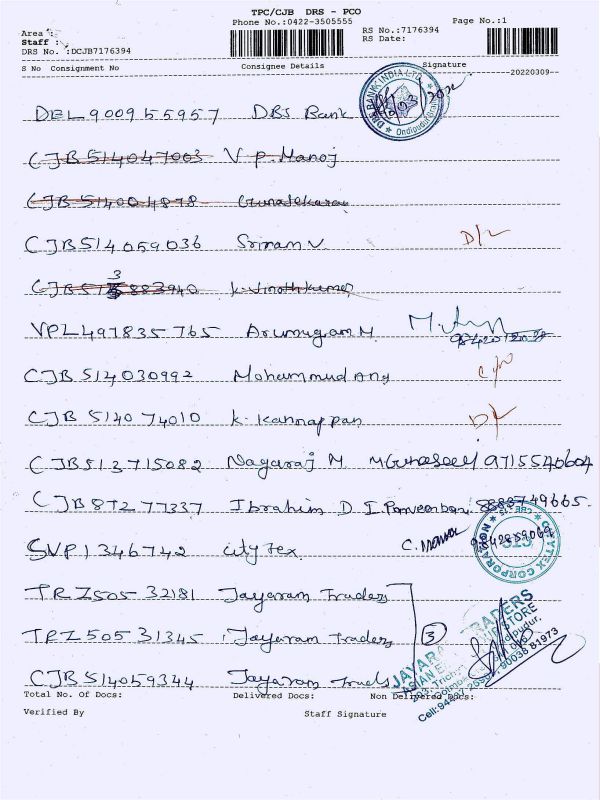 TPC/CJB DRS - PCO
Phone No.:0422-3505555 Page No.:1
Area :
Staff :
DRS No. :DCJB7176394
RS No.:7176394
RS Date:
S No Consignment No Consignee Details Signature
20220309
DEL900955957 DBS Bank
DBS BANK INDIA LTD
CJB514047003 V P. Manoj
CJB514004878 Gunasekaran
CJB514059036 Sriram V. D/L
CJB513883940 K. Vinothkumar
VPL497835765 Arumugam M.
CJB 514030992 Mohammud Ang
CJB 514074010 K. Kannappan D/L
CJB513715082 Nagaraj M. 9715540604
CJB87277337 Ibrahim D 8883749665.
SVP1346742 City Tex
CITYTEX CORPORATION
TRZ505 32181 Jayaram Traders
TRZ50531345 Jayaram Traders 3
CJB514059344 Jayaram
JAYARAM TRADERS
Total No. Of Docs: Delivered Docs: Non Delivered Docs:
Verified By Staff Signature